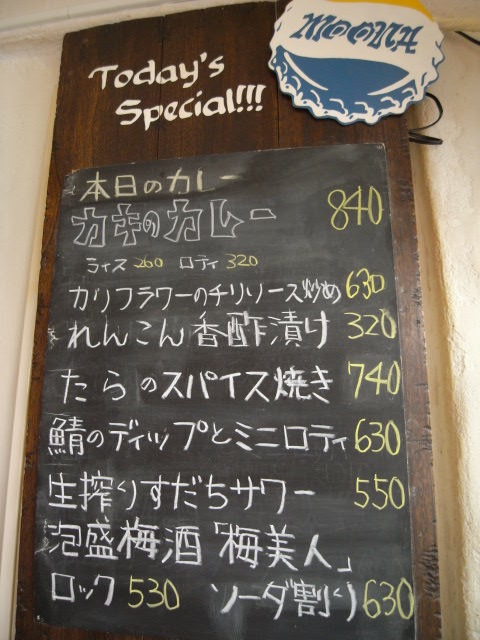 MOONA
Today's
Special!!!
本日のカレー
カキのカレー 840
ライス 260 ロティ 320
カリフラワーのチリソース炒め 630
れんこん香酢漬け 320
たらのスパイス焼き 740
鯖のディップとミニロティ 630
生搾りすだちサワー 550
泡盛梅酒「梅美人」
ロック 530 ソーダ割り 630